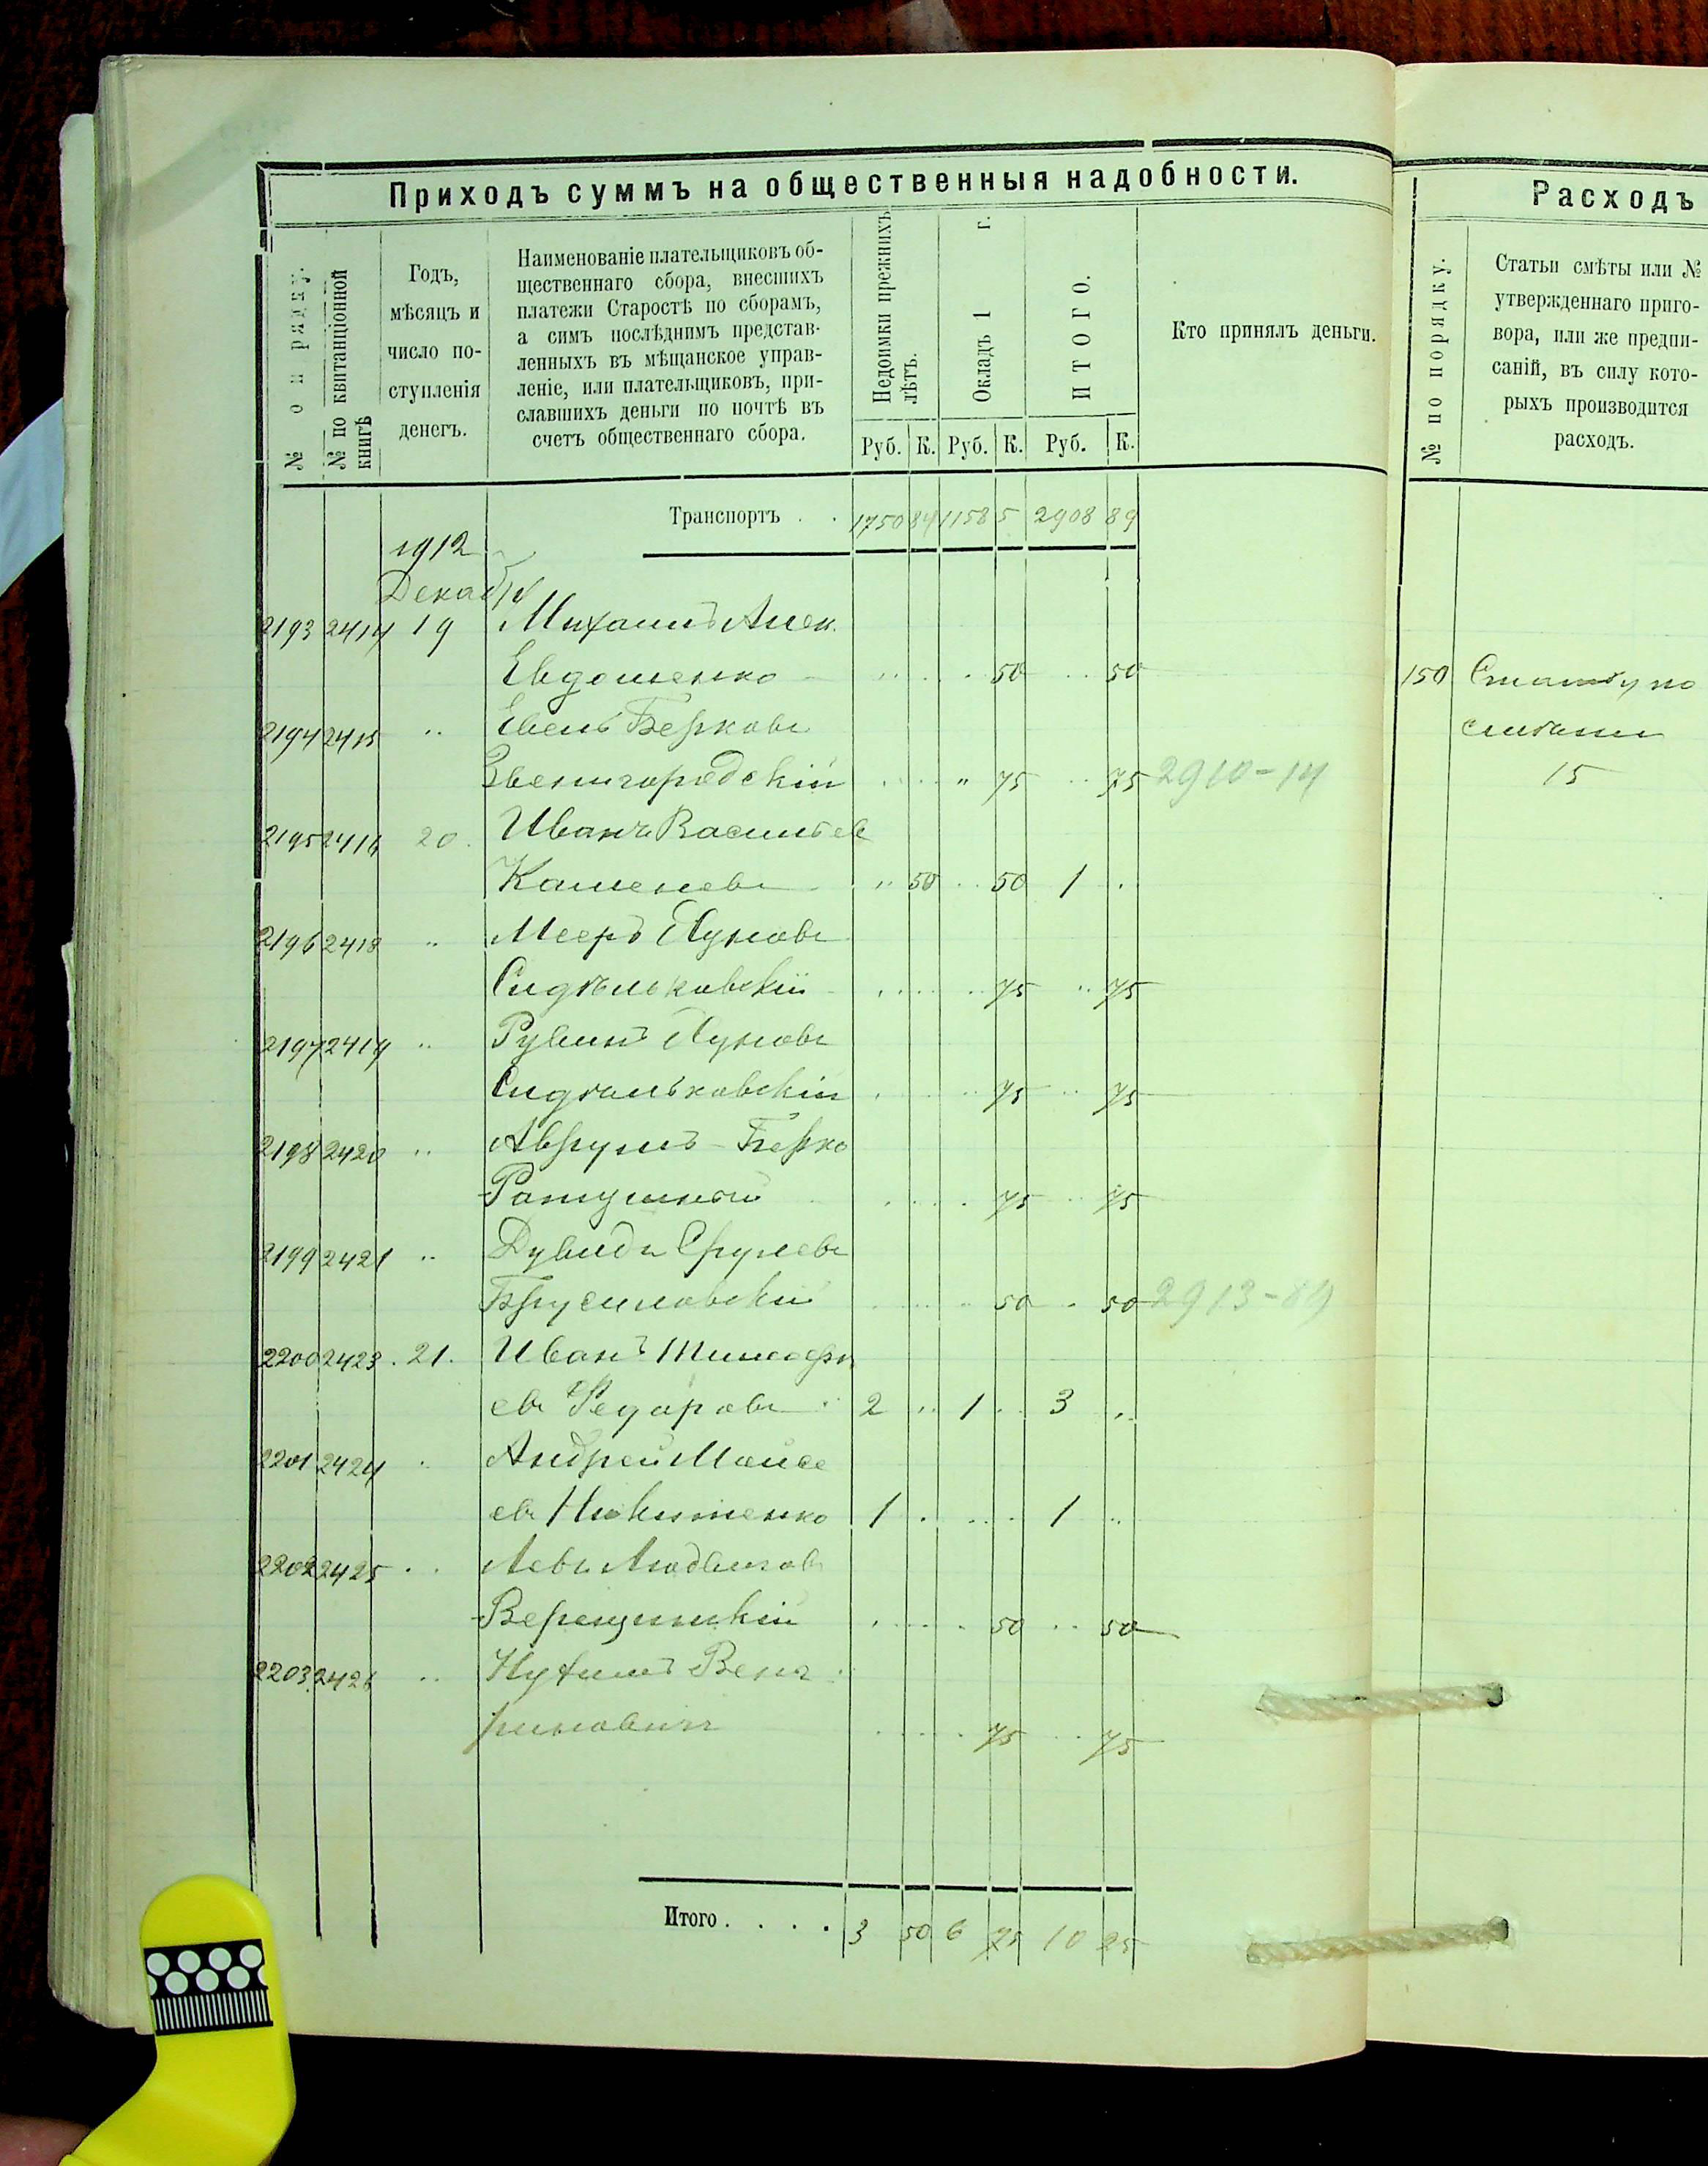 Приходъ суммъ на общественныя надобности.
№ по рядку.
№ по квитанціонной книгѣ
Годъ,
мѣсяцъ и
число по-
ступленія
денегъ.
Наименованіе плательщиковъ об-
щественнаго сбора, внесшихъ
платежи Старостѣ по сборамъ,
а симъ послѣднимъ представ-
ленныхъ въ мѣщанское управ-
леніе, или плательщиковъ, при-
славшихъ деньги по почтѣ въ
счетъ общественнаго сбора.
Недоимки прежнихъ
лѣтъ.
Окладъ 1 г.
ИТОГО.
Руб. К. Руб. К. Руб. К.
Кто принялъ деньги.
Транспортъ . . 1750 84 1158 5 2908 89
1912
2193 2414 19 Михаилъ Алек.
Евдошенко 50 50
2194 2415 " Евель Берковъ
Звенигородскій " 75 75 2910-14
2195 2416 20. Иванъ Васильев
Каменевъ " 50 50 1
2196 2418 " Мееръ Нуновъ
Сидѣльковскій 75 75
2197 2419 " Рувинъ Нуновъ
Сидѣльковскій 75 75
2198 2420 " Аврумъ-Берко
Ратушный 75 75
2199 2421 " Дувидъ Срулевъ
Брусиловскій 50 50 2913-89
2200 2423. 21. Иванъ Тимофе
евъ Федоровъ 2 " 1 3 "
2201 2424 Андрей Моисе
евъ Никитенко 1 1 "
2202 2425 Левъ Людвигов
Верещинскій 50 50
2203 2426 "
75 75
Итого . . . . 3 50 6 75 10 25
Расходъ
№ по порядку.
Статьи смѣты или №
утвержденнаго приго-
вора, или же предпи-
саній, въ силу кото-
рыхъ производится
расходъ.
150
15